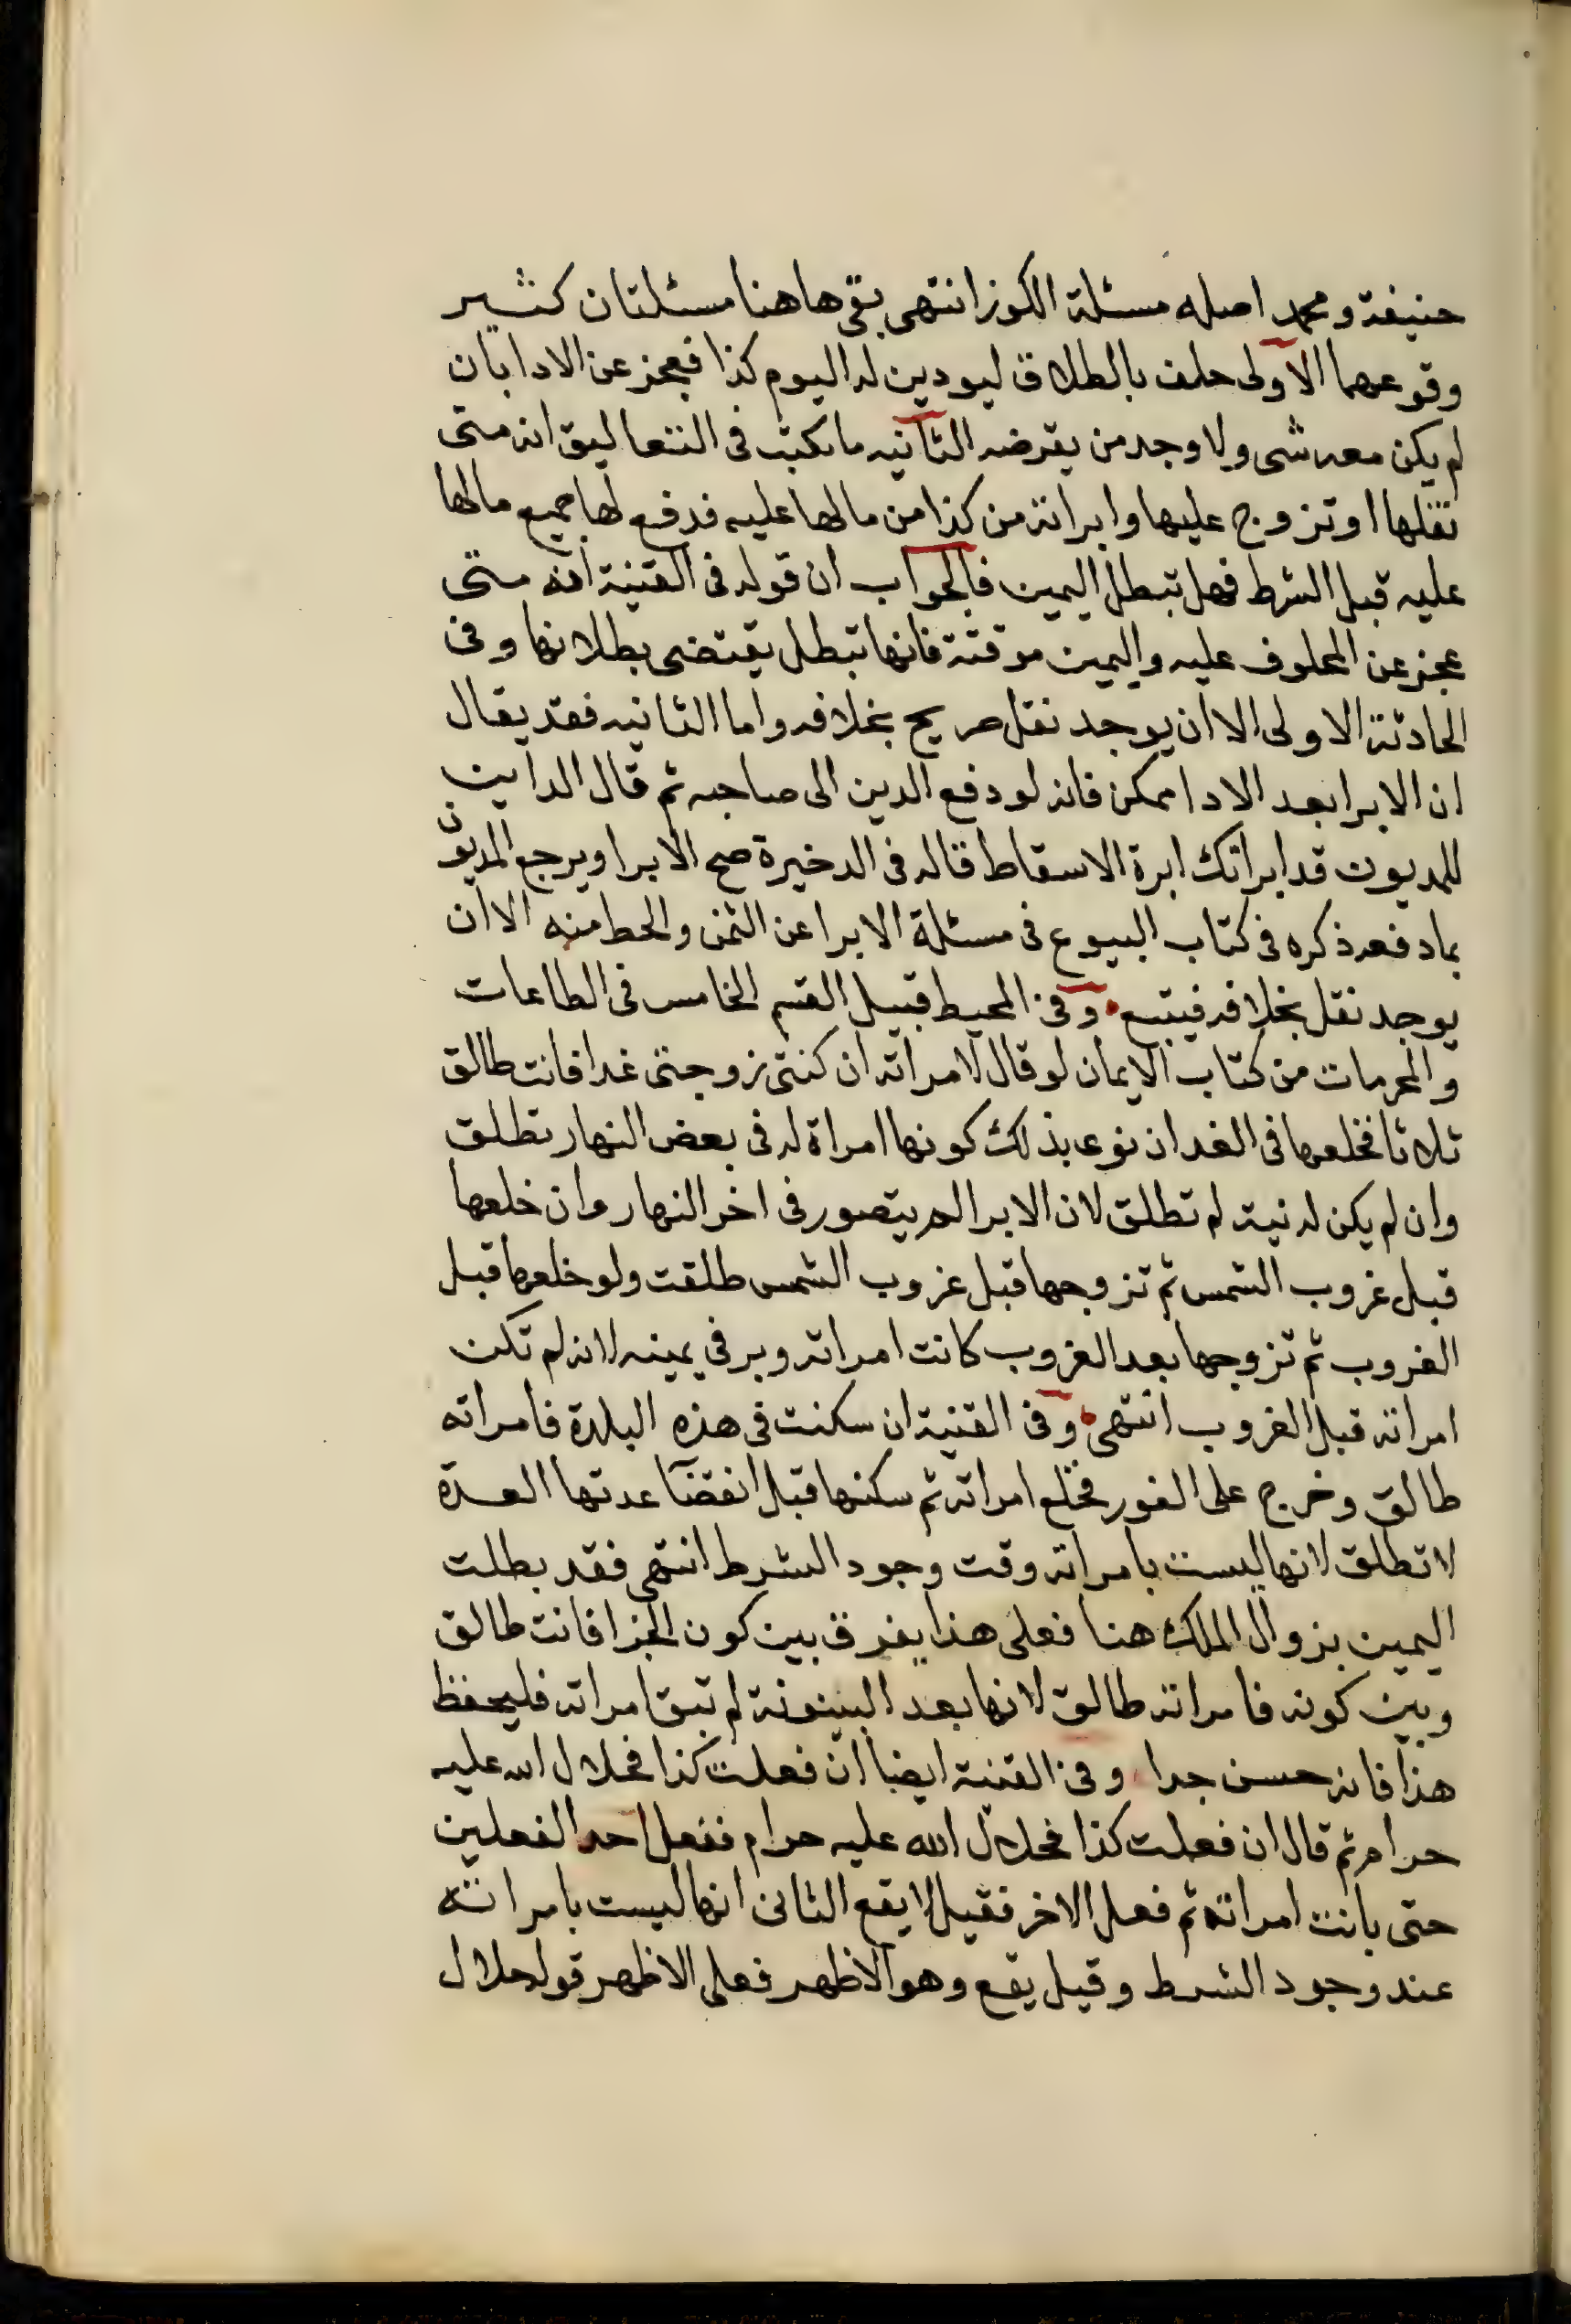 حنيفة ومحمد اصله مسئلة الكوز انتهى بقى هاهنا مسئلتان كثير
وقوعهما الاولى حلف بالطلاق ليودين له اليوم كذا فعجز عن الادا بان
لم يكن معه شى ولا وجد من يقرضه الثانيه ما يكتب فى التعاليق انه متى
نقلها او تزوج عليها وابراته من كذا من مالها عليه فدفع لها جميع مالها
عليه قبل الشرط فهل تبطل اليمين فالجواب ان قوله فى القنية انه متى
عجز عن المحلوف عليه واليمين موقتة فانها تبطل يقتضى بطلانها وفى
الحادثة الاولى الا ان يوجد نقل صريح بخلافه واما الثانيه فقد يقال
ان الابرا بعد الادا ممكن فانه لو دفع الدين الى صاحبه ثم قال الداين
للمديون قد ابراتك ابرة الاسقاط قاله فى الدخيرة صح الابرا ويرجع المديون
بما دفعه ذكره فى كتاب البيوع فى مسئلة الابرا عن الثمن والحط منه الا ان
يوجد نقل بخلافه فيتبع وفى المحيط قبيل القسم الخامس فى الطاعات
والمحرمات من كتاب الايمان لو قال لامراته ان كنتى زوجتى غدا فانت طالق
ثلاثا فخلعها فى الغد ان نوى بذلك كونها امراة له فى بعض النهار تطلق
وان لم يكن له نية لم تطلق لان الابر اله يتصور فى اخر النهار وان خلعها
قبل غروب الشمس ثم تزوجها قبل غروب الشمس طلقت ولو خلعها قبل
الغروب ثم تزوجها بعد الغروب كانت امراته وبر في يمينه لانه لم تكن
امراته قبل الغروب انتهى وفى القنية ان سكنت فى هذه البلدة فامراته
طالق وخرج على الفور فخلع امراته ثم سكنها قبل انقضآ عدتها العدة
لا تطلق لانها ليست بامراته وقت وجود الشرط انتهى فقد بطلت
اليمين بزوال الملك هنا فعلى هذا يفرق بين كون الجزا فانت طالق
وبين كونه فامراته طالق لانها بعد البينونة لم تبق امراته فليحفظ
هذا فانه حسن جدا وفى القنية ايضا ان فعلت كذا فحلال الله عليه
حرام ثم قال ان فعلت كذا فحلال الله عليه حرام ففعل احد الفعلين
حتى بانت امراته ثم فعل الاخر فقيل لا يقع الثانى انها ليست بامراته
عند وجود الشرط وقيل يقع وهو الاظهر فعلى الاظهر قوله حلال